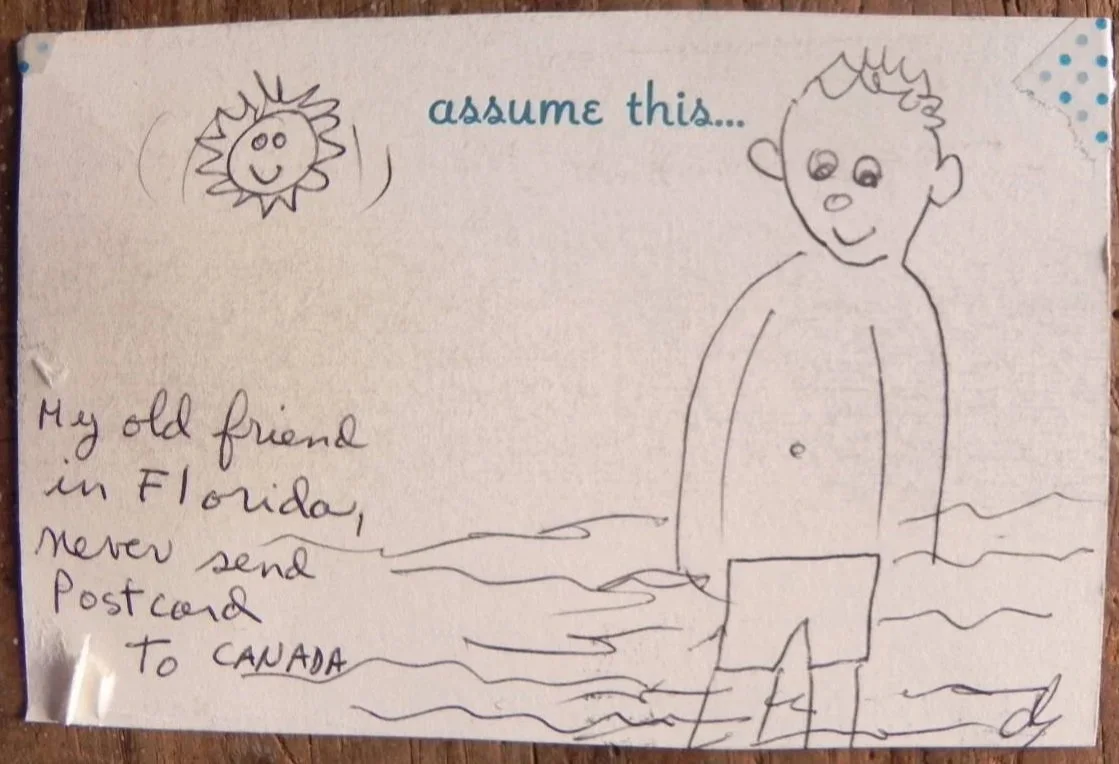 assume this...
My old friend
in Florida,
never send
Postcard
To CANADA